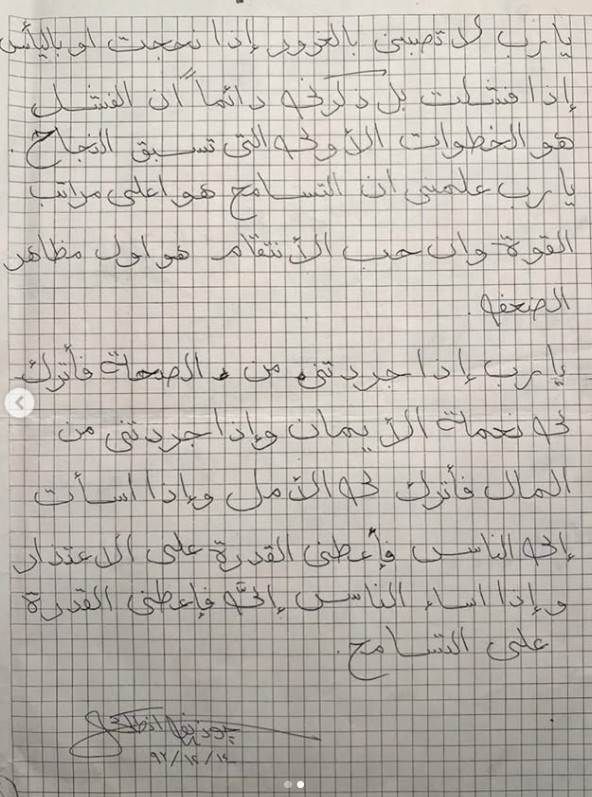 يا رب لا تصبني بالغرور إذا نجحت او باليأس
إذا فشلت بل ذكرني دائماً ان الفشل
هو الخطوات الأولى التي تسبق النجاح.
يا رب علمني ان التسامح هو اعلى مراتب
القوة وان حب الأنتقام هو اول مظاهر
الضعف.
يا رب إذا جردتني من الصحة فأترك
لي نعمة الأيمان وإذا جردتني من
المال فأترك لي الأمل وإذا اسأت
إلى الناس فأعطني القدرة على الاعتذار
وإذا اساء الناس إليّ فإعطني القدرة
على التسامح.